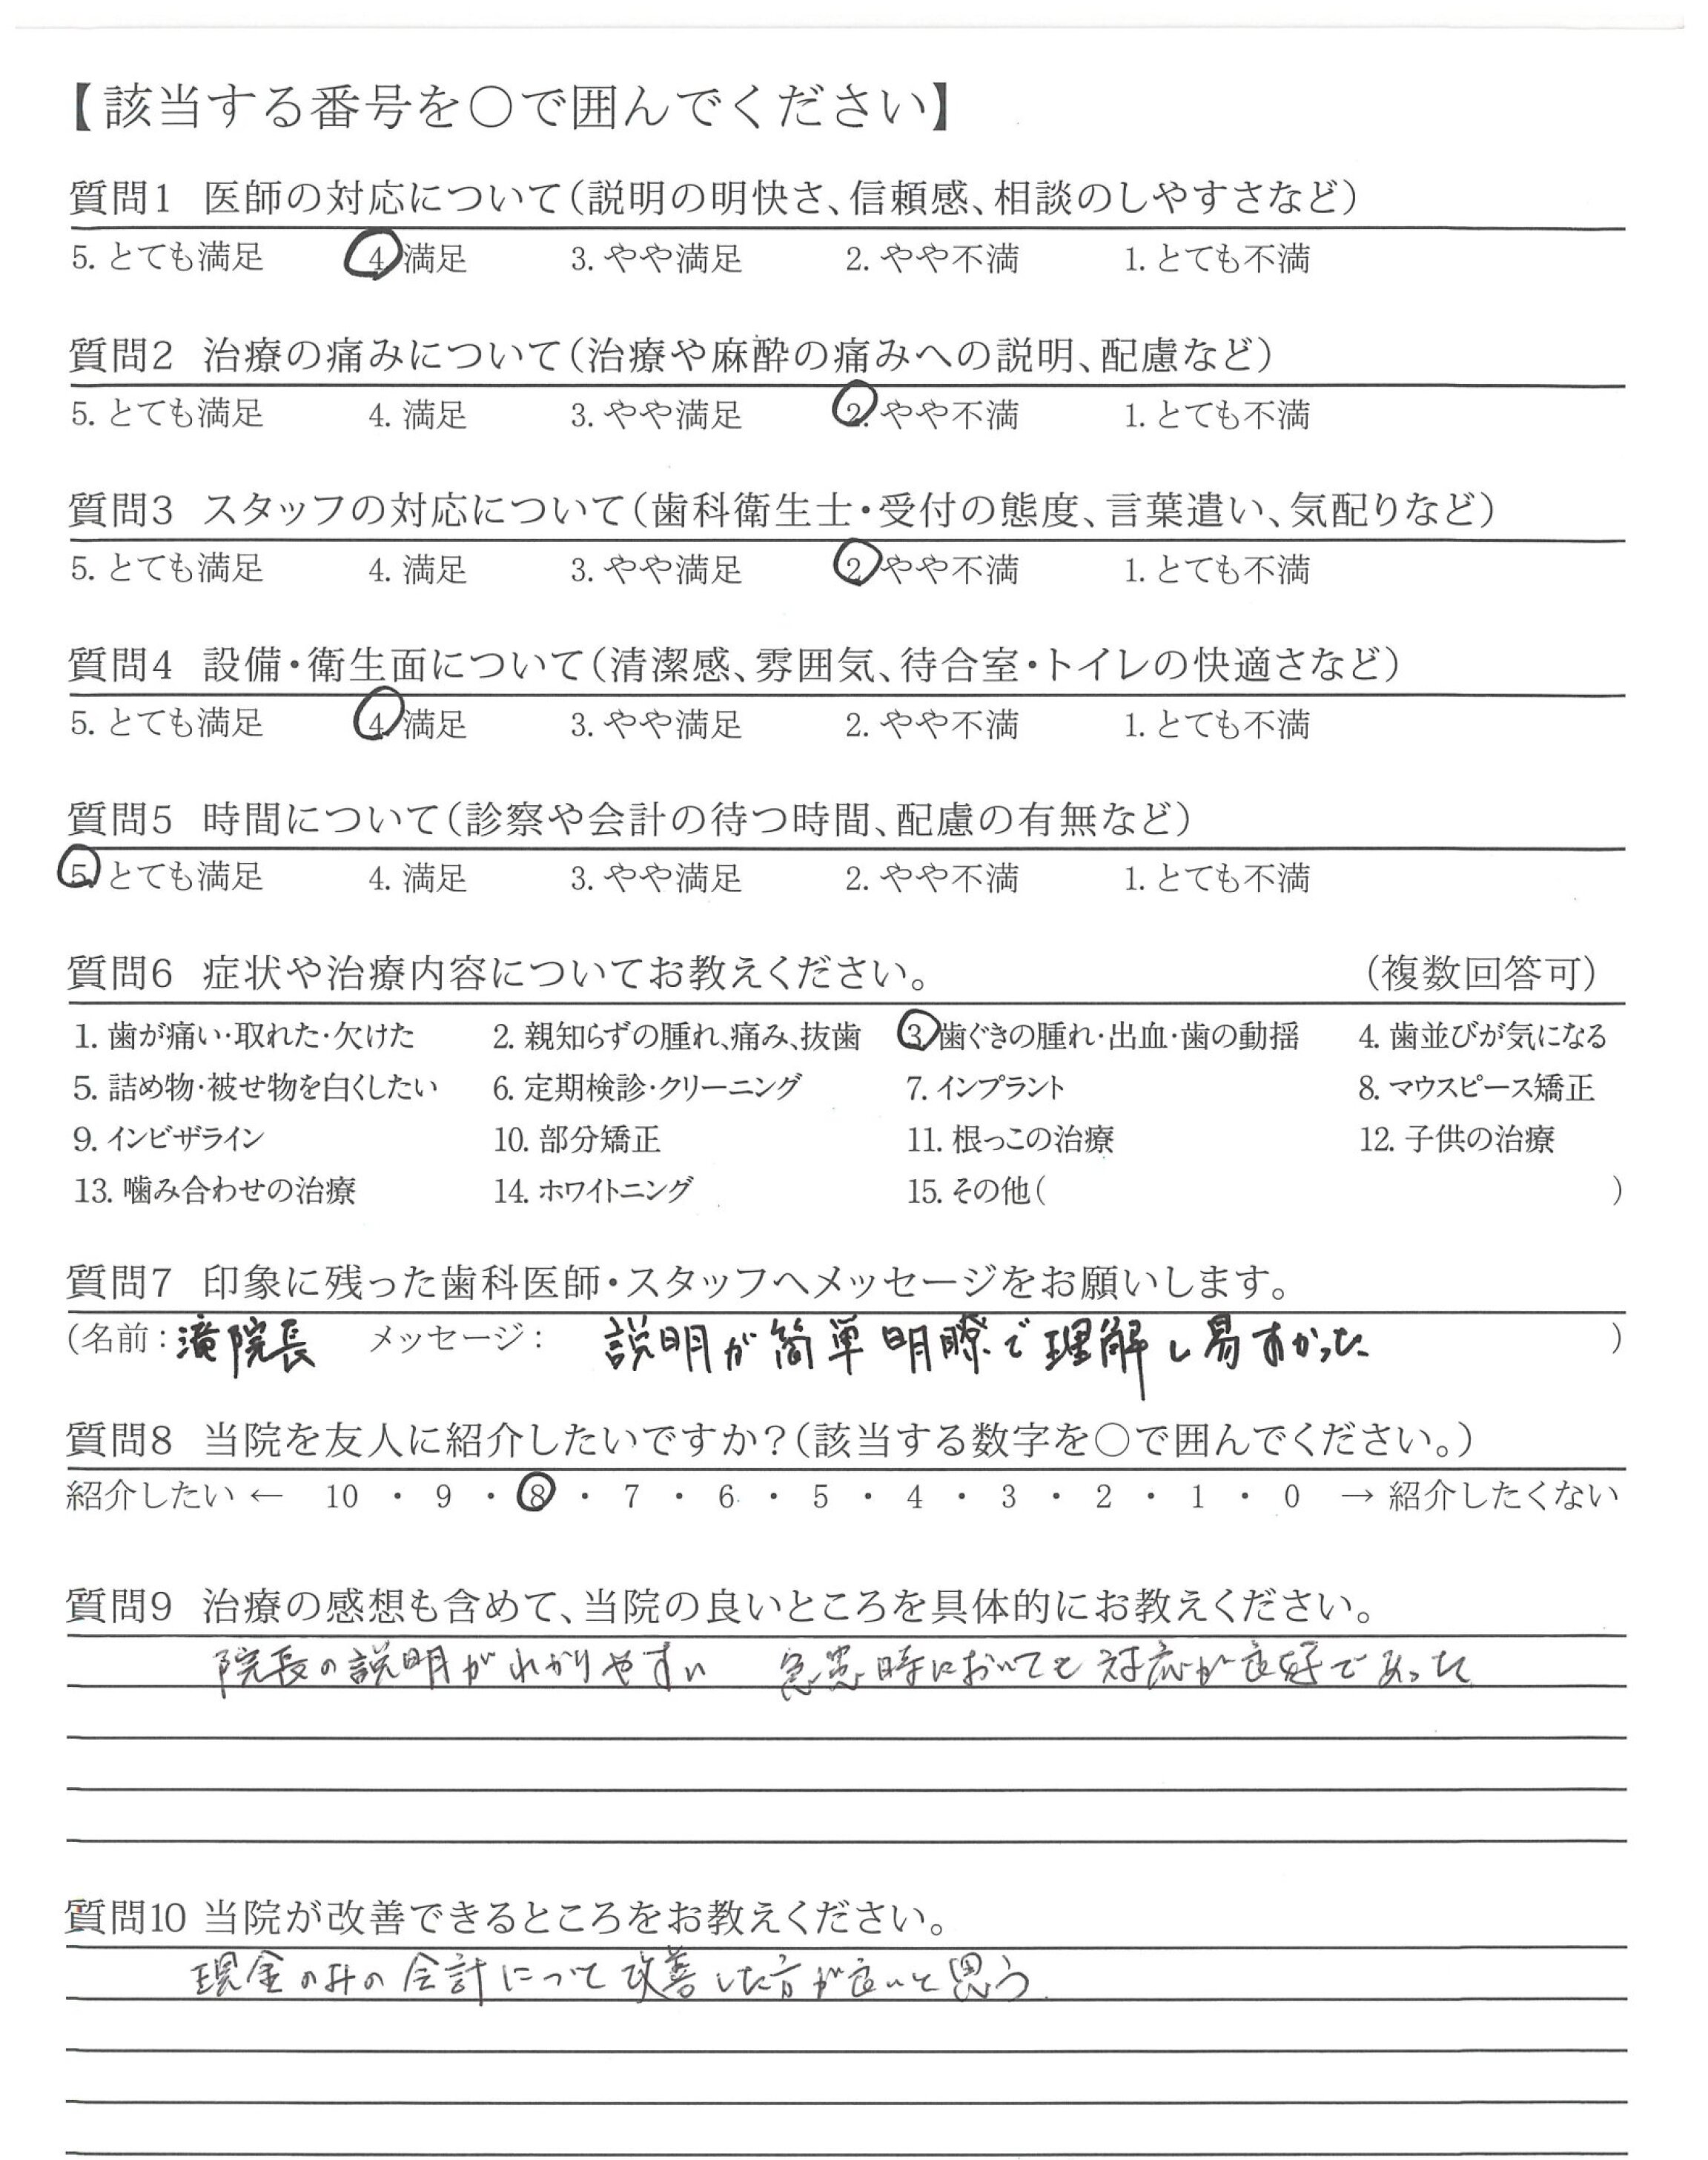 【該当する番号を○で囲んでください】
質問1 医師の対応について（説明の明快さ、信頼感、相談のしやすさなど）
5. とても満足 4. 満足 3. やや満足 2. やや不満 1. とても不満
質問2 治療の痛みについて（治療や麻酔の痛みへの説明、配慮など）
5. とても満足 4. 満足 3. やや満足 2. やや不満 1. とても不満
質問3 スタッフの対応について（歯科衛生士・受付の態度、言葉遣い、気配りなど）
5. とても満足 4. 満足 3. やや満足 2. やや不満 1. とても不満
質問4 設備・衛生面について（清潔感、雰囲気、待合室・トイレの快適さなど）
5. とても満足 4. 満足 3. やや満足 2. やや不満 1. とても不満
質問5 時間について（診察や会計の待つ時間、配慮の有無など）
5. とても満足 4. 満足 3. やや満足 2. やや不満 1. とても不満
質問6 症状や治療内容についてお教えください。 （複数回答可）
1. 歯が痛い・取れた・欠けた 2. 親知らずの腫れ、痛み、抜歯 3. 歯ぐきの腫れ・出血・歯の動揺 4. 歯並びが気になる
5. 詰め物・被せ物を白くしたい 6. 定期検診・クリーニング 7. インプラント 8. マウスピース矯正
9. インビザライン 10. 部分矯正 11. 根っこの治療 12. 子供の治療
13. 噛み合わせの治療 14. ホワイトニング 15. その他（ ）
質問7 印象に残った歯科医師・スタッフへメッセージをお願いします。
（名前：滝院長 メッセージ： 説明が簡単明瞭で理解し易すかった ）
質問8 当院を友人に紹介したいですか？（該当する数字を○で囲んでください。）
紹介したい ← 10 ・ 9 ・ 8 ・ 7 ・ 6 ・ 5 ・ 4 ・ 3 ・ 2 ・ 1 ・ 0 → 紹介したくない
質問9 治療の感想も含めて、当院の良いところを具体的にお教えください。
院長の説明がわかりやすい 急患時においても対応が良好であった
質問10 当院が改善できるところをお教えください。
現金のみの会計について改善した方が良いと思う